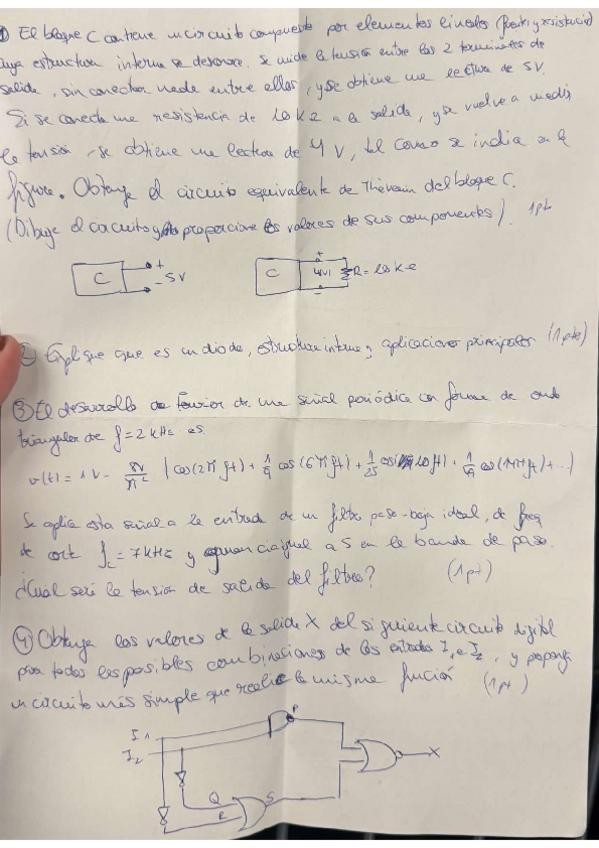 ① El bloque C contiene un circuito compuesto por elementos lineales (fuentes y resistencias)
cuya estructura interna se desconoce. Se mide la tensión entre los 2 terminales de
salida, sin conectar nada entre ellos, y se obtiene una lectura de 5V.
Si se conecta una resistencia de 10 KΩ a la salida, y se vuelve a medir
la tensión, se obtiene una lectura de 4 V, tal como se indica en la
figura. Obtenga el circuito equivalente de Thévenin del bloque C.
(Dibuje el circuito y proporcione los valores de sus componentes). 1pto
C + - 5V C + 4V - R = 10 K
② Explique que es un diodo, estructura interna y aplicaciones principales (1pto)
③ El desarrollo de Fourier de una señal periódica con forma de onda
triangular de f = 2 kHz es
v(t) = 1V - 8V/π² (cos(2π ft) + 1/9 cos(6π ft) + 1/25 cos(10 ft) +
Se aplica esta señal a la entrada de un filtro paso-bajo ideal, de freq
de corte fc = 7 kHz y ganancia igual a 5 en la banda de paso.
¿Cuál será la tensión de salida del filtro? (1pt)
④ Obtenga los valores de la salida X del siguiente circuito digital
para todas las posibles combinaciones de las entradas I₁ e I₂, y proponga
un circuito más simple que realice la misma función (1pt)
I₁
I₂
P
Q
R
S
X